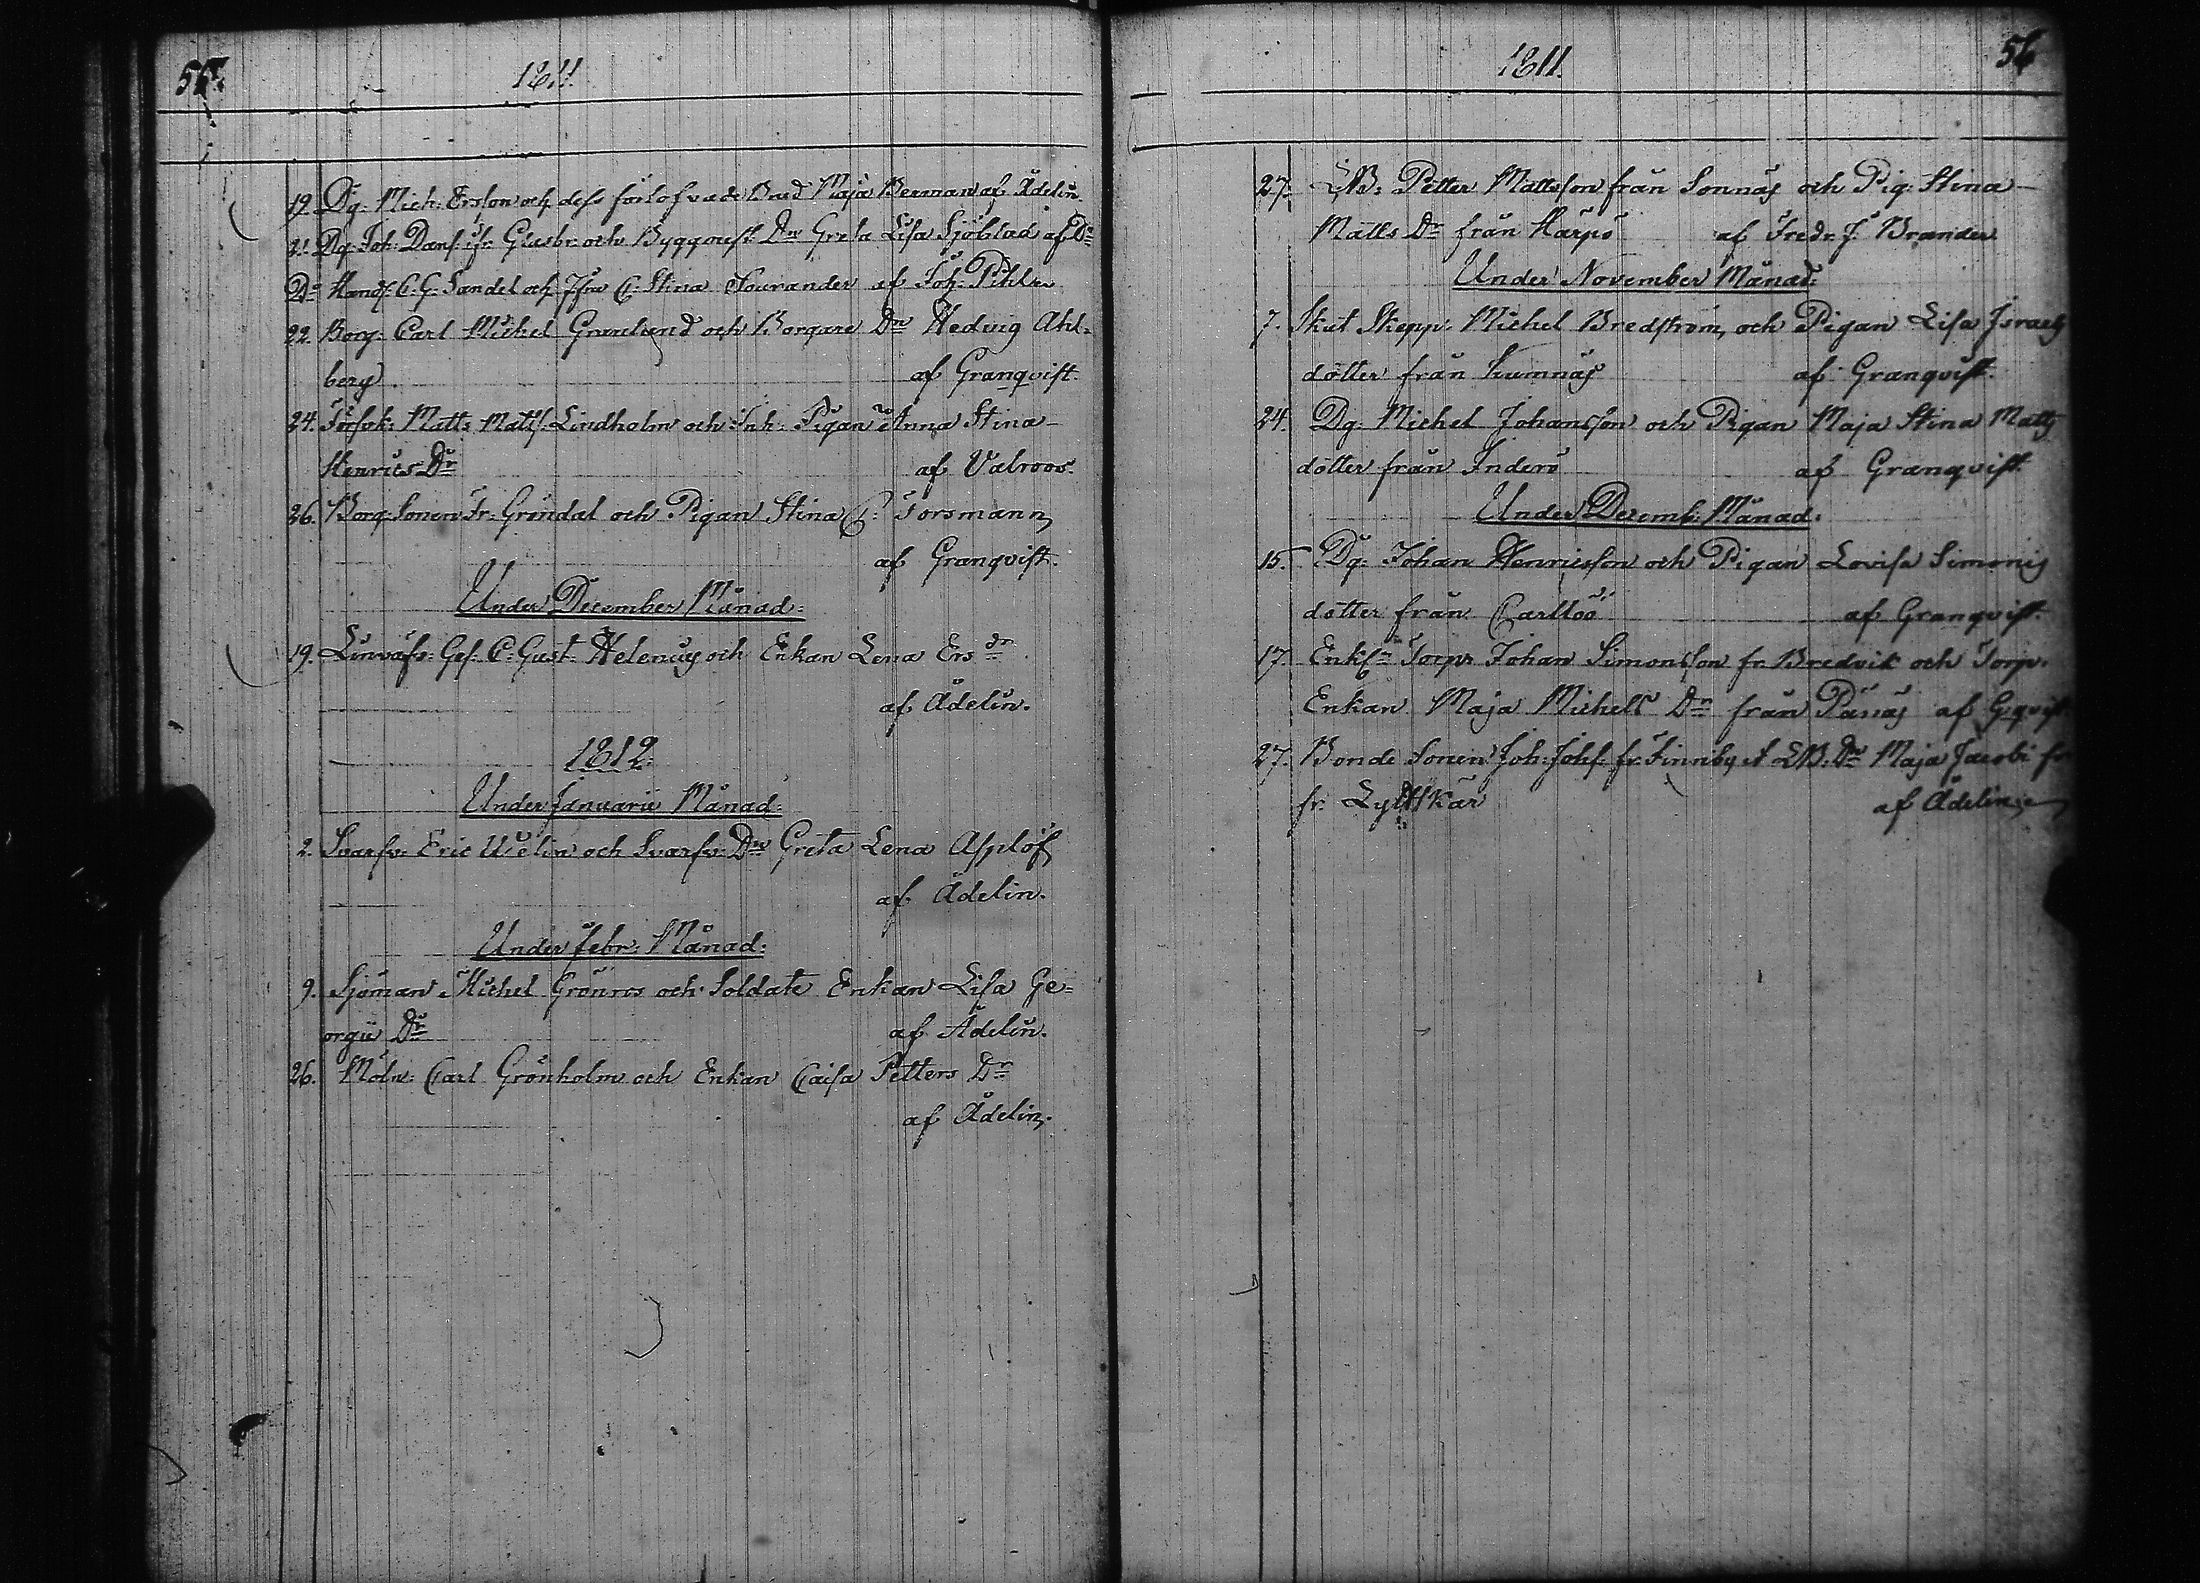 55.
1811.
19. Dg. Mich: Ersson och dess förlofvade Brud Maja Berman af Ådelin.
21. Dg. Joh: Dans. fr. Gusbr. och Byggmest. Dr Greta Lisa Sjöblad af Do
Do Handl. C. G. Sandel och Jfru C. Stina Sourander af Joh: Pihlm
22. Borg. Carl Michel Granlund och Borgare Dr Hedvig Ahl-
berg af Granqvist.
24. Förfvk: Matts Matss. Lindholm och Inh: Pigan Anna Stina
Henrics Dr af Valroos.
26. Borg. Sonen Fr: Gröndal och Pigan Stina C: Forsmann
af Granqvist.
Under December Månad:
19. Linväfv. Ges. C. Gust. Helenius och Enkan Lena Ers dr
af Ådelin.
1812.
Under Januarii Månad:
2. Svarfv: Eric Uselin och Svarfv: Dr Greta Lena Asplöf
af Ådelin.
Under Febr: Månad:
9. Sjöman Michel Grönros och Soldate Enkan Lisa Ge-
orgii Dr af Ådelin.
26. Möln: Carl Grönholm och Enkan Caisa Petters Dr
af Ådelin.
1811. 56
27. LB: Petter Mattsson från Sonnäs och Pig: Stina
Matts Dr från Härpö af Fredr. J. Brander
Under November Månad:
7. Skut Skepp: Michel Bredström, och Pigan Lisa Israels
dotter från af Granqvist.
24. Dg: Michel Johansson och Pigan Maja Stina Matts
dotter från Inderö af Granqvist
Under Decemb: Månad:
15. Dg: Johan Henricsson och Pigan Lovisa Simonis
dotter från Carlloö af Granqvist.
17. Enkln Torp: Johan Simonsson fr. Bredvik och Torp.
Enkan Maja Michels Dr från Panäs af Gqvist
27. Bonde Sonen Joh: Johs. fr. Finnby et LB: Dr Maja Jacobi fr
fr. Lyttskär af Ådelin